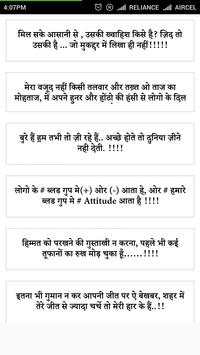 4:07PM RELIANCE AIRCEL
मिल सके आसानी से , उसकी ख्वाहिश किसे है? ज़िद तो
उसकी है ... जो मुकद्दर में लिखा ही नहीं!!!!!
मेरा वजुद नहीं किसी तलवार और तख्त ओ ताज का
मोहताज, में अपने हुनर और होंठो की हंसी से लोगो के दिल
बुरे हैं हम तभी तो ज़ी रहे हैं.. अच्छे होते तो दुनिया ज़ीने
नही देती. !!!!
लोगो के # ब्लड गुप मे(+) ओर (-) आता हे, ओर # हमारे
ब्लड गुप मे # Attitude आता है !!!!
हिम्मत को परखने की गुस्ताखी न करना, पहले भी कई
तूफानों का रुख मोड़ चुका है......!!!!
इतना भी गुमान न कर आपनी जीत पर ऐ बेखबर, शहर में
तेरे जीत से ज्यादा चर्चे तो मेरी हार के हैं..!!